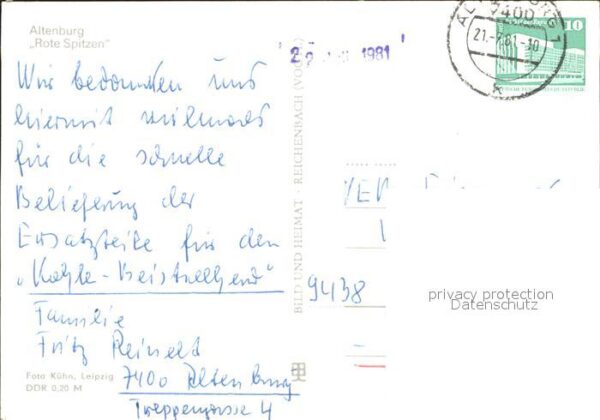 Altenburg
„Rote Spitzen"
Wir bedanken uns
hiermit vielmals
für die schnelle
Belieferung der
Ersatzteile für den
Familie
Fritz
7400 Altenburg
Treppengasse 4
Foto Kühn, Leipzig
DDR 0,20 M
BILD UND HEIMAT · REICHENBACH (VOGTL)
1981
7400
21.-7.81.-10
k
10
VEB
9438
privacy protection
Datenschutz